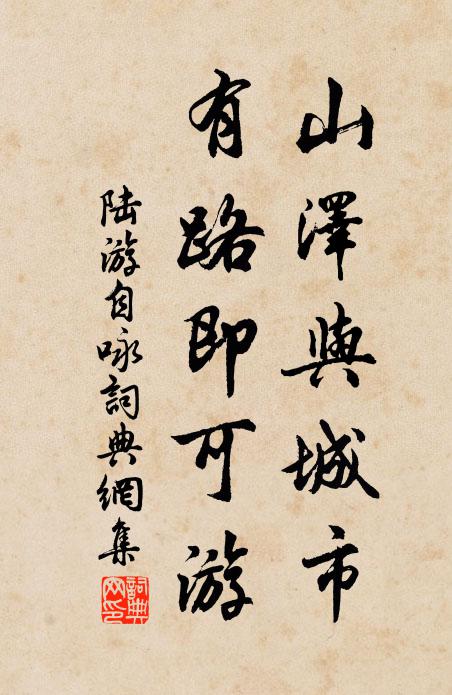 山澤與城市
有路即可游
陆游自咏詞典網集
詞典网印